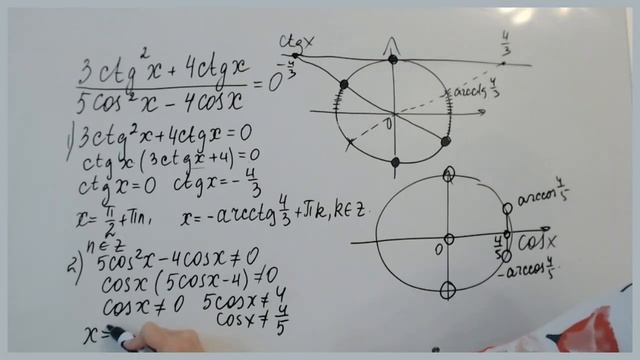 3ctg²x + 4ctgx
5cos²x - 4cosx
= 0
1) 3ctg²x + 4ctgx = 0
ctgx (3ctgx + 4) = 0
ctgx = 0 ctgx = - 4/3
x = π/2 + πn, x = -arcctg 4/3 + πk, k∈Z.
n∈Z
2) 5cos²x - 4cosx ≠ 0
cosx (5cosx - 4) ≠ 0
cosx ≠ 0 5cosx ≠ 4
cosx ≠ 4/5
x =
ctgx
-4/3
4/3
arcctg 4/3
0
arccos 4/5
0
4/5
cosx
-arccos 4/5